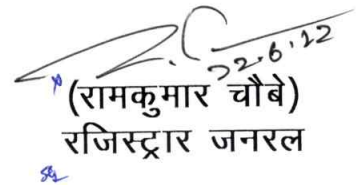 22.6.12
(रामकुमार चौबे)
रजिस्ट्रार जनरल